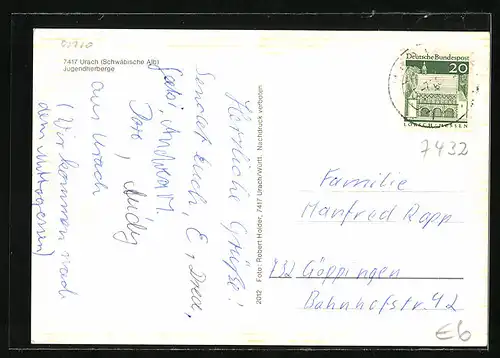 7417 Urach (Schwäbische Alb)
Jugendherberge
Herzliche Grüße!
Sendet euch, E., Dreu,
Gabi, Andrea M.
Andy
aus Urach
(Wir kommen nach
dem Mittagessen)
2012 Foto: Robert Holder, 7417 Urach/Württ. Nachdruck verboten
Deutsche Bundespost
20
LORSCH/HESSEN
7432
Familie
Manfred Rapp
732 Göppingen
Bahnhofstr. 42
€6